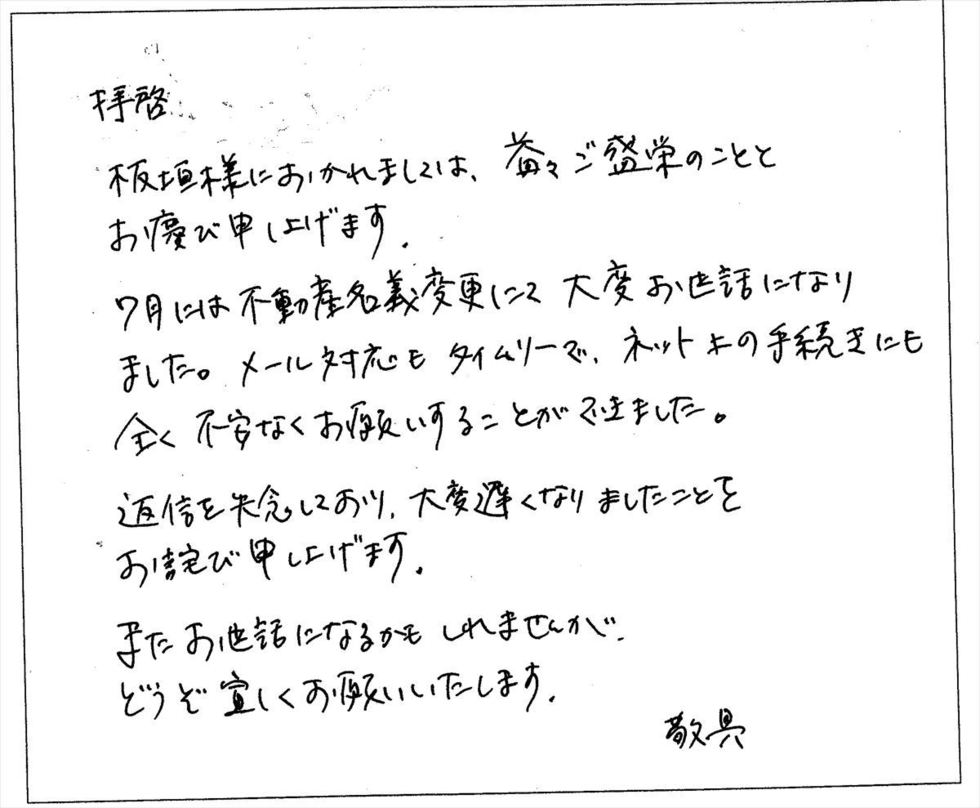 拝啓
板垣様におかれましては、益々ご盛栄のことと
お慶び申し上げます.
7月には不動産名義変更にて大変お世話になり
ました。メール対応もタイムリーで、ネット上の手続きにも
全く不安なくお願いすることができました。
返信を失念しており、大変遅くなりましたことを
お詫び申し上げます.
またお世話になるかもしれませんが、
どうぞ宜しくお願いいたします.
敬具